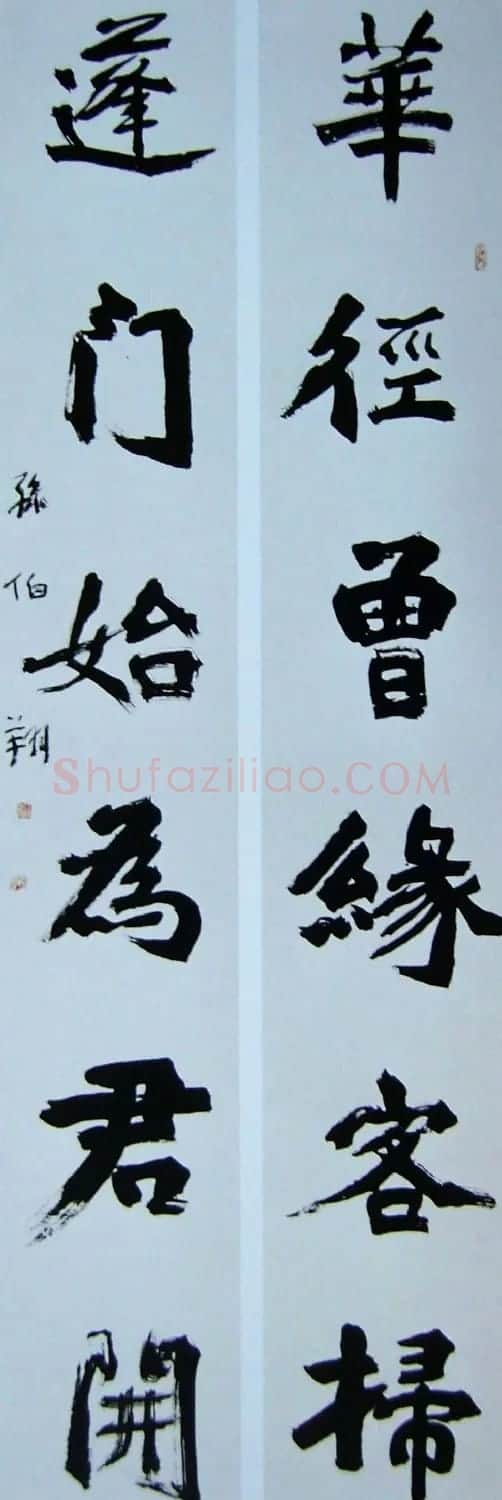 華徑曾緣客掃
蓬门始為君開
孫伯翔
Shufaziliao.COM